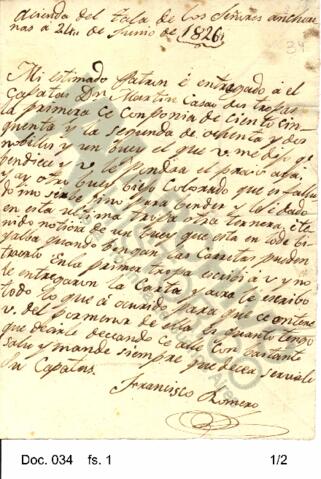 acienda del tala de los Señores anchore
nas a 24 de Junio de 1826
34
Mi estimado Patron é entregado á el
Capatas Dn Martin Casau dos tropas
la primera Ce Componia de Ciento Cin
quenta y la segunda de ochenta y dos
nobillos y un buey el que v. me dejo qe
bendiese y v. le pondra el precio aya,
y ay otro buey biejo Colorado que es fallu
do no serbe sino para bender y le é dado
en esta ultima tropa otra ternera, é te
nido noticia de un buey que esta en lo de bi
llalba quando bengan las Carretas pueden
traerlo. En la primera tropa escribi á v y no
le entregaron la Carta y aora le escribo
todo lo que á ocurido para que ce entere
v. del pormenor de ella, es quanto tengo
que decirle deceando ce alle con bastante
salu y mande siempre que decea serbirle
Su Capatas.
Francisco Romero
Doc. 034 fs. 1 1/2